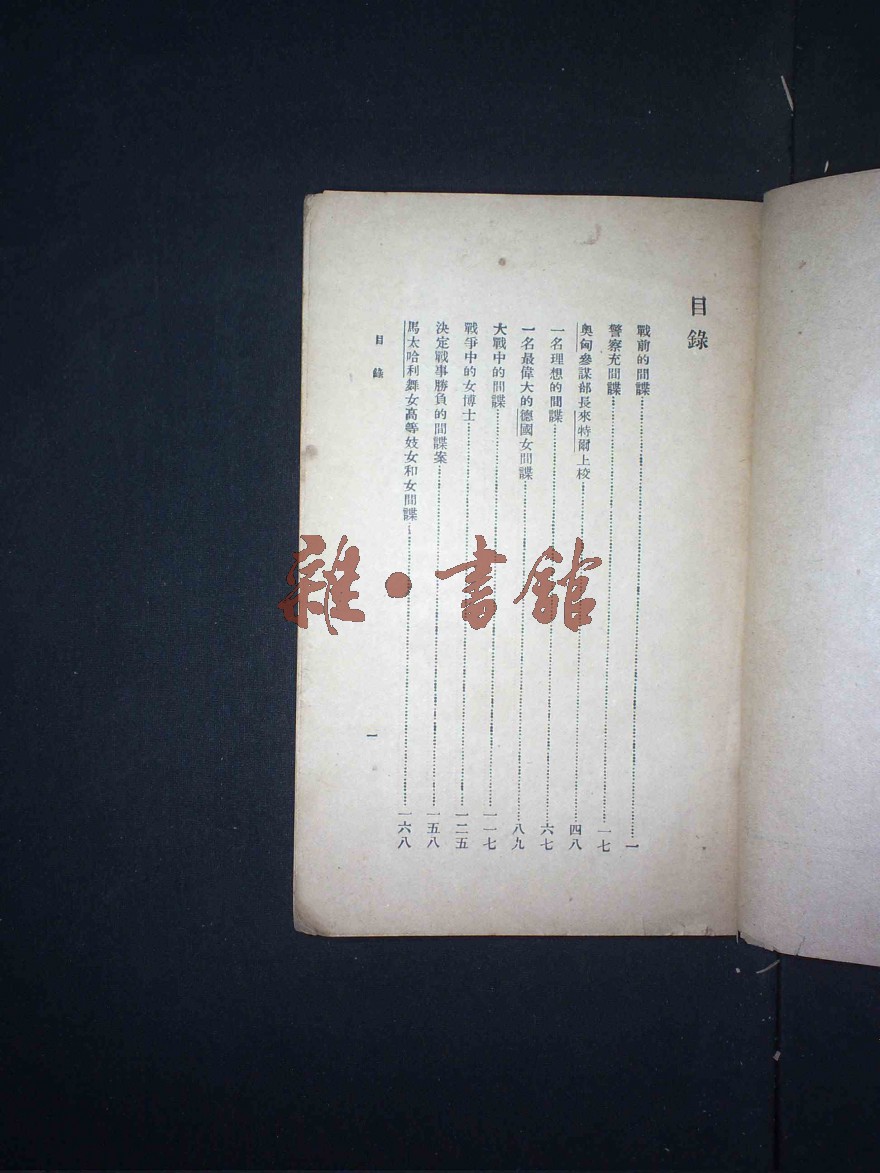 目錄
戰前的間諜……一
警察充間諜……一七
奧匈參謀部長來特爾上校……四八
一名理想的間諜……六七
一名最偉大的德國女間諜……八九
大戰中的間諜……一一七
戰爭中的女博士……一二五
決定戰事勝負的間諜案……一五八
馬太哈利舞女高等妓女和女間諜……一六八
目錄
一
雜·書館